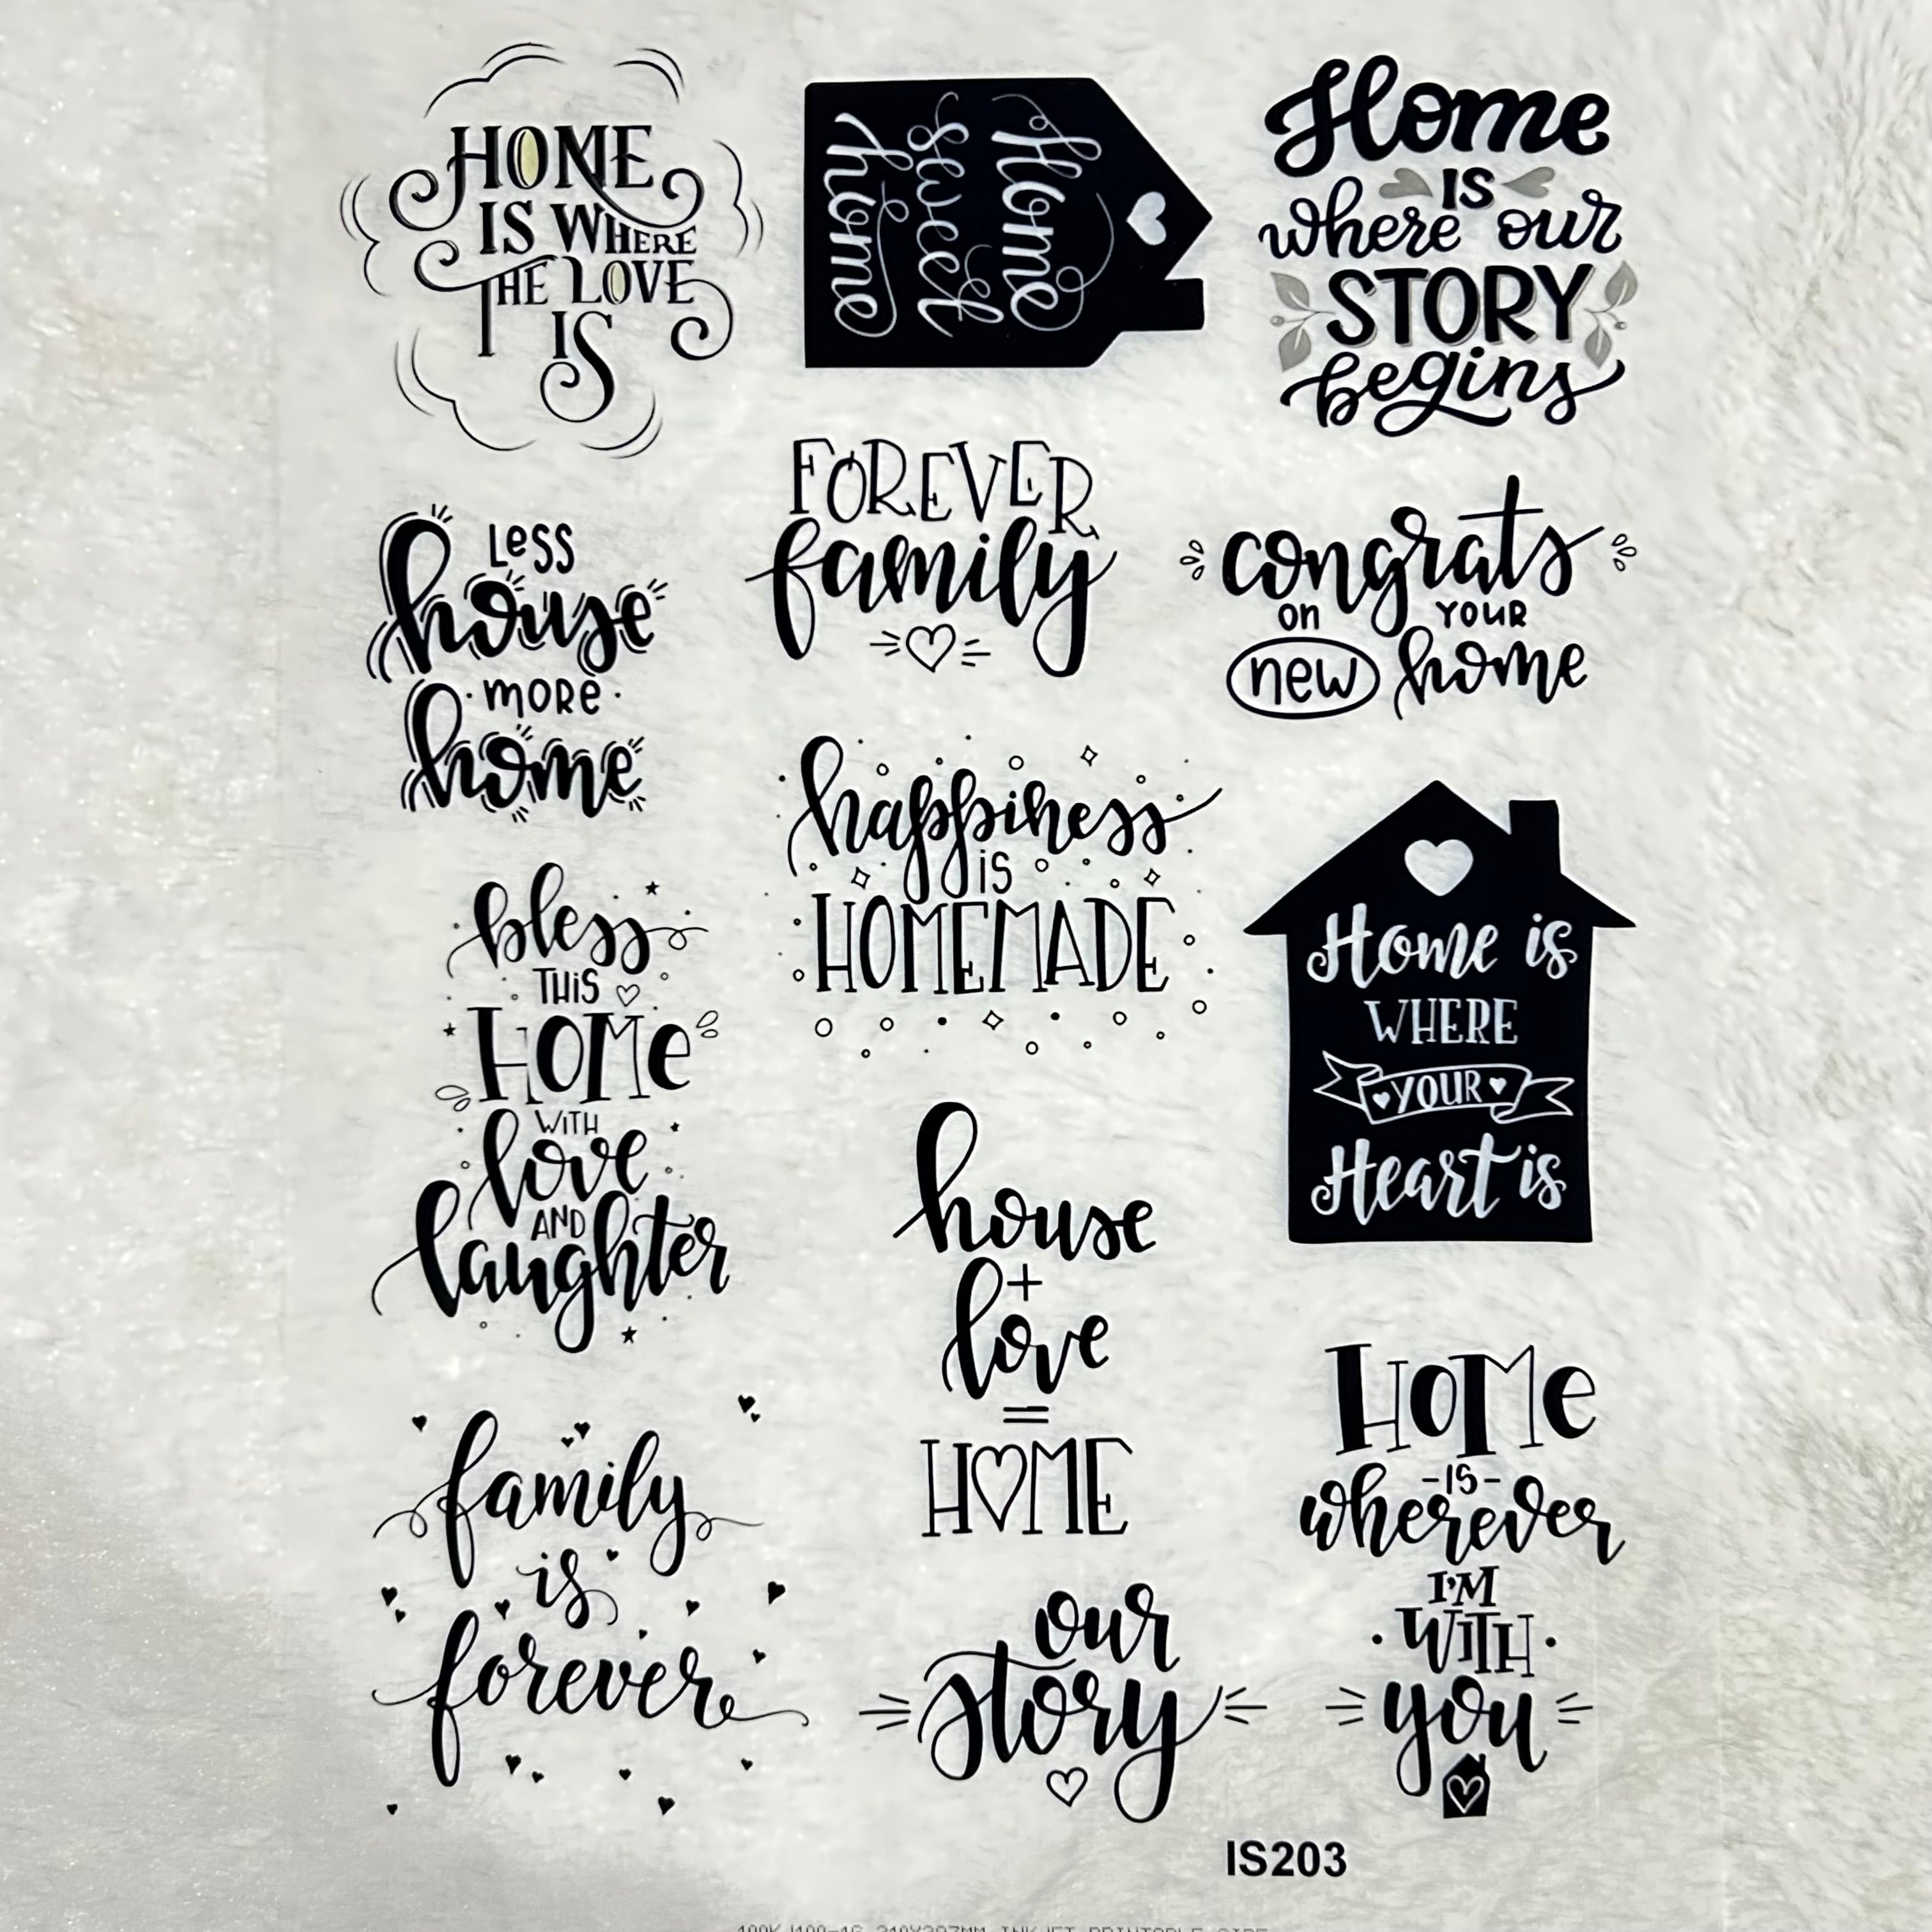 HOME
IS WHERE
THE LOVE
IS
Home
sweet
home
Home
IS
where our
STORY
begins
LESS
house
more
home
FOREVER
family
congrats
on YOUR
new home
happiness
is
HOMEMADE
bless
THIS
HOME
WITH
love
AND
laughter
Home is
WHERE
YOUR
Heart is
house
+
love
=
HOME
family
is
forever
our
story
HOME
-IS-
wherever
I'M
WITH
you
IS203